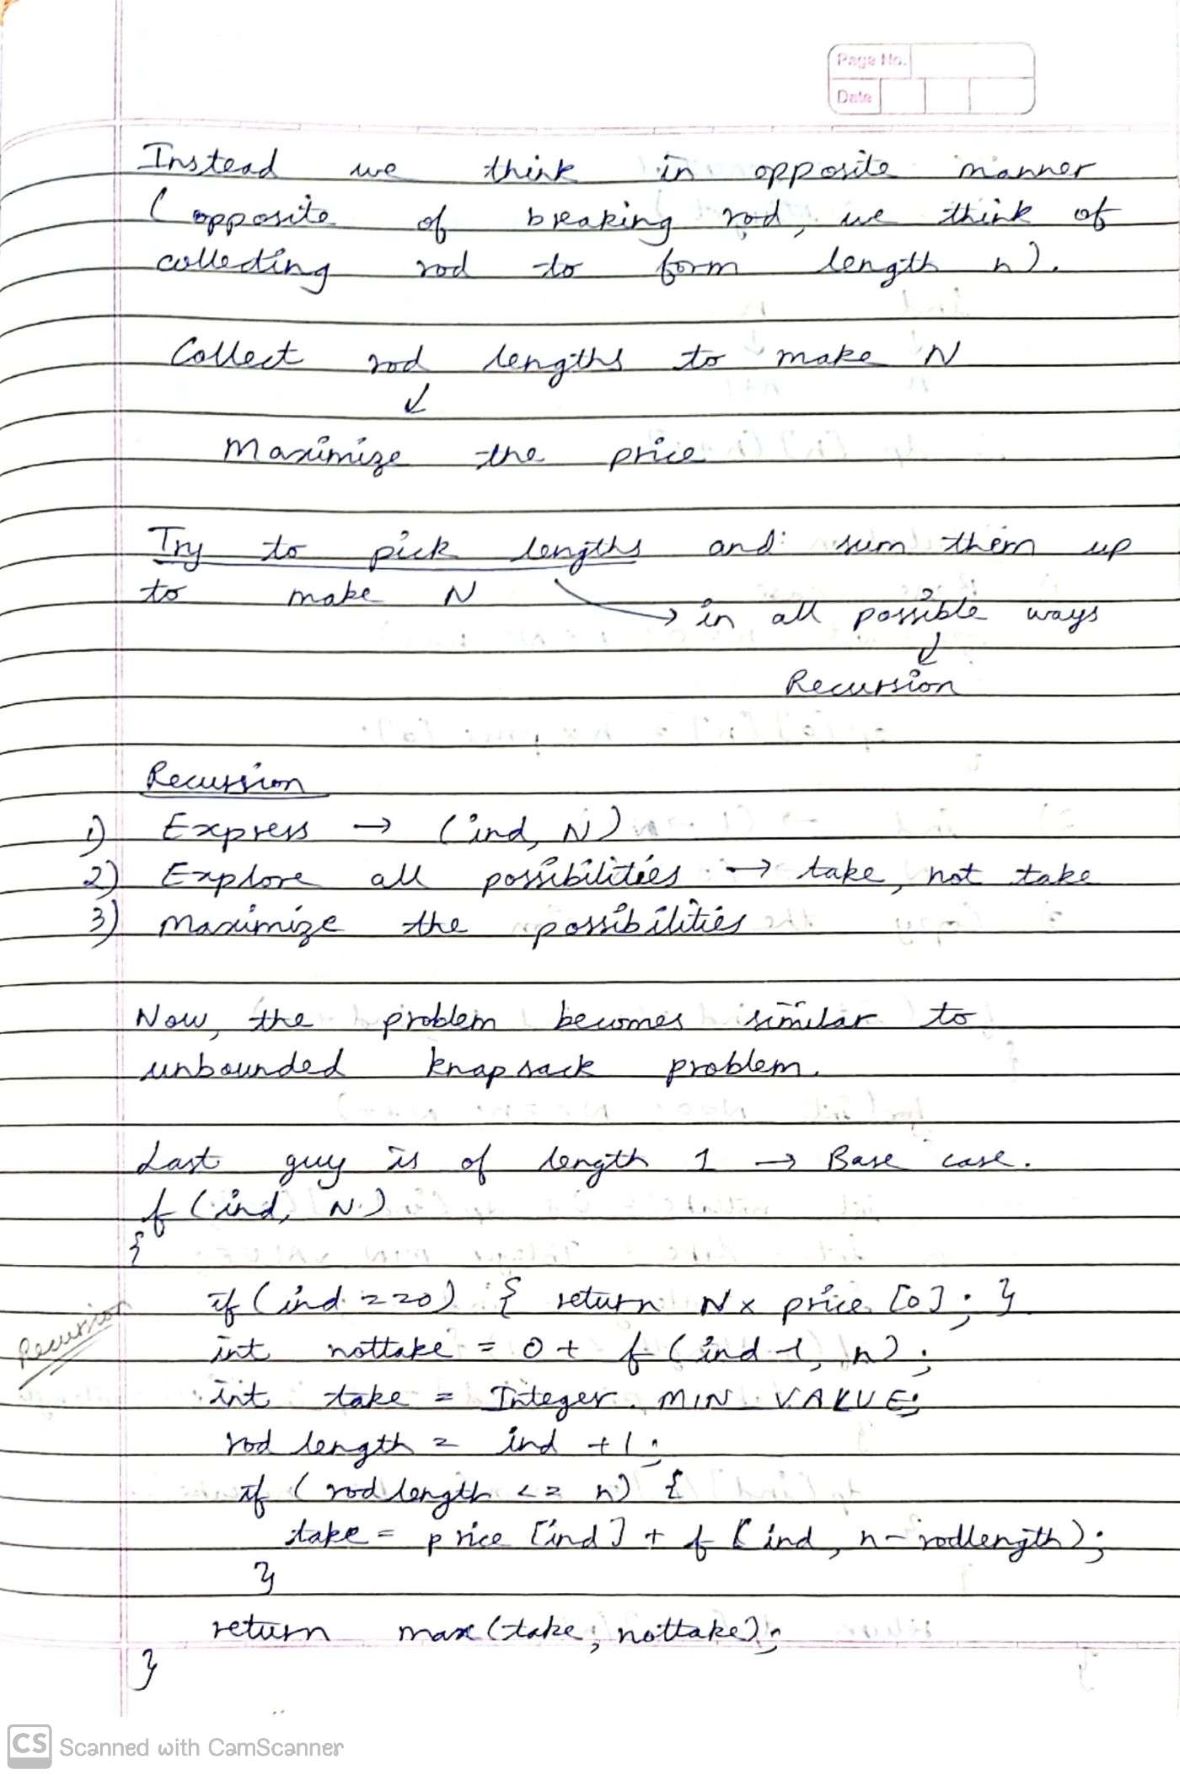 Page No.
Date
Instead we think in opposite manner
(opposite of breaking rod, we think of
collecting rod to form length n).
Collect rod lengths to make N
↓
Maximize the price
Try to pick lengths and sum them up
to make N
→ in all possible ways
↓
Recursion
Recussion
1) Express → (ind, N)
2) Explore all possibilities → take, not take
3) Maximize the possibilities
Now, the problem becomes similar to
unbounded knapsack problem.
Last guy is of length 1 → Base case.
f (ind, N)
{
if (ind == 0) { return N x price [0]; }
Recursion
int nottake = 0 + f (ind-1, n);
int take = Integer. MIN_VALUE;
rod length = ind + 1;
if (rodlength <= n) {
take = price [ind] + f (ind, n-rodlength);
}
return max (take, nottake);
}
CS Scanned with CamScanner